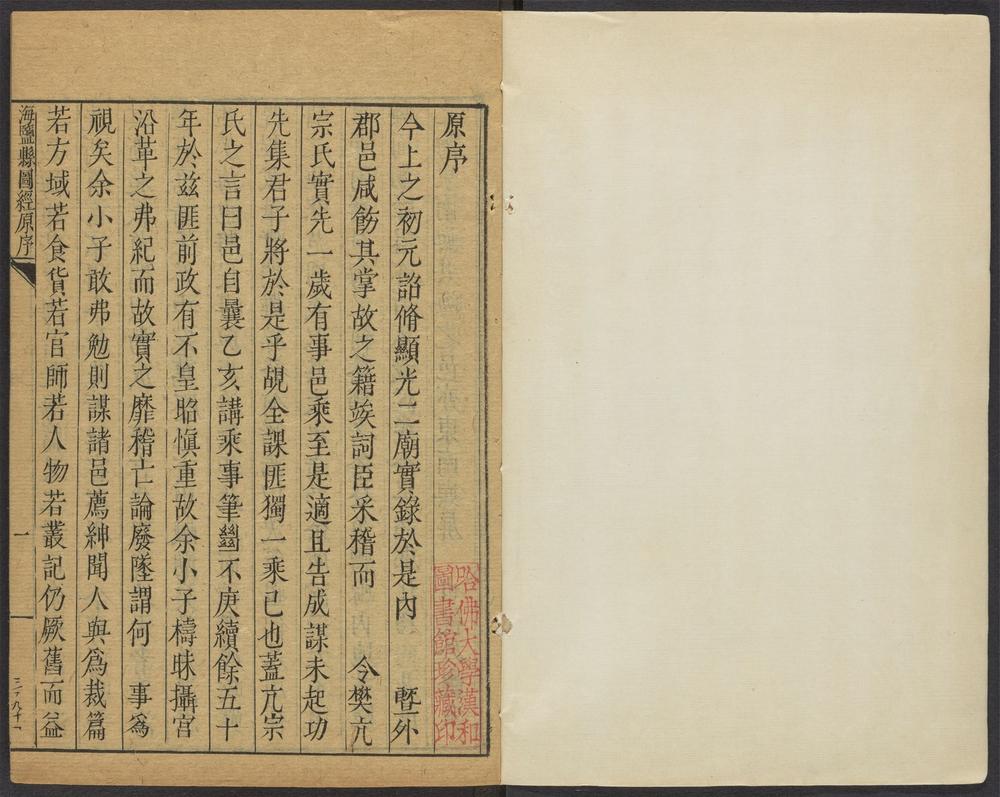 原序
今上之初元詔脩顯光二廟實錄於是內　曁外
郡邑咸飭其掌故之籍竢詞臣采稽而　令樊亢
宗氏實先一歲有事邑乘至是適且告成謀未起功
先集君子將於是乎覘全課匪獨一乘已也蓋亢宗
氏之言曰邑自曩乙亥講乘事筆㡭不庚續餘五十
年於茲匪前政有不皇昭愼重故余小子檮昧攝宮
沿革之弗紀而故實之靡稽亡論廢墜謂何　事爲
視矣余小子敢弗勉則謀諸邑薦紳聞人與爲裁篇
若方域若食貨若官師若人物若叢記仍厥舊而益
海鹽縣圖經原序
一
哈佛大學漢和
圖書館珍藏印